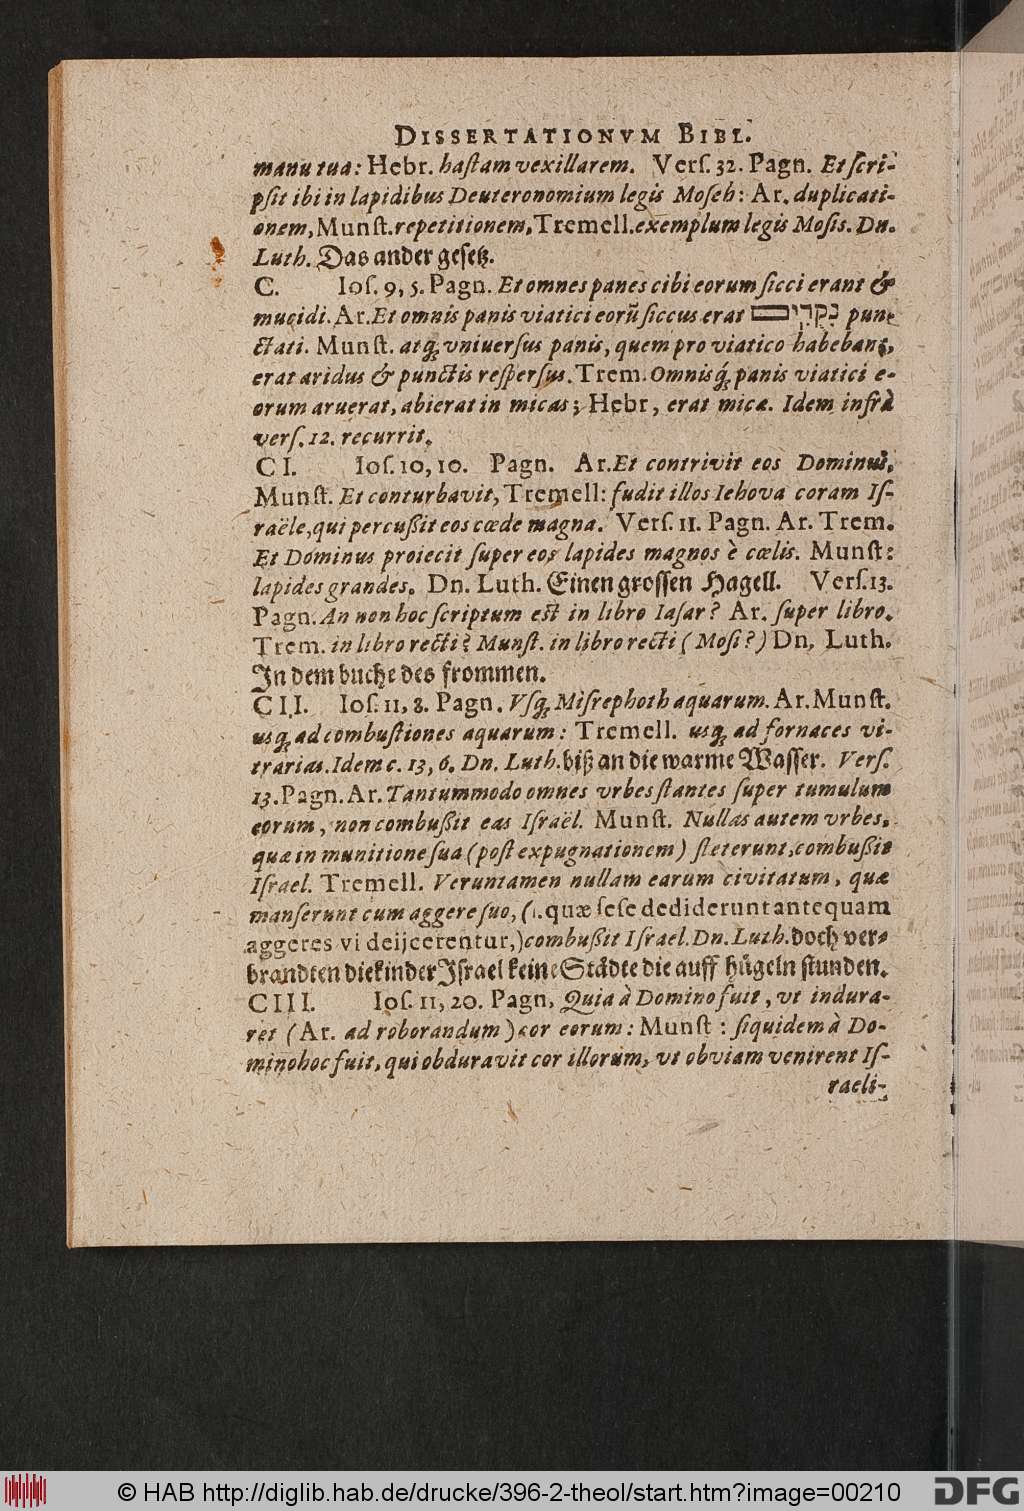 DISSERTATIONVM BIBL.
manu tua: Hebr. haſtam vexillarem. Verſ. 32. Pagn. Et ſcri-
pſit ibi in lapidibus Deuteronomium legis Moſeh: Ar. duplicati-
onem, Munſt. repetitionem, Tremell. exemplum legis Moſis. Dn.
Luth. Das ander geſetz.
C. Ioſ. 9, 5. Pagn. Et omnes panes cibi eorum ſicci erant &
mucidi. Ar. Et omnis panis viatici eorũ ſiccus erat נִקֻּדִים pun-
ctati. Munſt. atq́; vniuerſus panis, quem pro viatico habebant,
erat aridus & punctis reſperſus. Trem. Omnisq́; panis viatici e-
orum aruerat, abierat in micas; Hebr, erat micæ. Idem infrà
verſ. 12. recurrit.
CI. Ioſ. 10, 10. Pagn. Ar. Et contrivit eos Dominus,
Munſt. Et conturbavit, Tremell: fudit illos Iehova coram Iſ-
raële, qui percußit eos cæde magna. Verſ. 11. Pagn. Ar. Trem.
Et Dominus proiecit ſuper eos lapides magnos è cælis. Munſt:
lapides grandes. Dn. Luth. Einen groſſen Hagell. Verſ. 13.
Pagn. An non hoc ſcriptum eſt in libro Iaſar? Ar. ſuper libro.
Trem. in libro recti? Munſt. in libro recti (Moſi?) Dn, Luth.
In dem buche des frommen.
CII. Ioſ. 11, 8. Pagn. Vſq́; Miſrephoth aquarum. Ar. Munſt.
usq́; ad combuſtiones aquarum: Tremell. usq́; ad fornaces vi-
trarias. Idem c. 13, 6. Dn. Luth. biß an die warme Waſſer. Verſ.
13. Pagn. Ar. Tantummodo omnes vrbes ſtantes ſuper tumulum
eorum, non combußit eas Iſraël. Munſt. Nullas autem vrbes,
quæ in munitione ſua (poſt expugnationem) ſteterunt, combußit
Iſrael. Tremell. Veruntamen nullam earum civitatum, quæ
manſerunt cum aggere ſuo, (1. quæ ſeſe dediderunt antequam
aggeres vi deijcerentur,) combußit Iſrael. Dn. Luth. doch ver-
brandten die kinder Iſrael keine Städte die auff hügeln ſtunden.
CIII. Ioſ. 11, 20. Pagn, Quia à Domino fuit, vt indura-
ret (Ar. ad roborandum) cor eorum: Munſt: ſiquidem à Do-
mino hoc fuit, qui obduravit cor illorum, vt obviam venirent Iſ-
raeli-
© HAB http://diglib.hab.de/drucke/396-2-theol/start.htm?image=00210
DFG